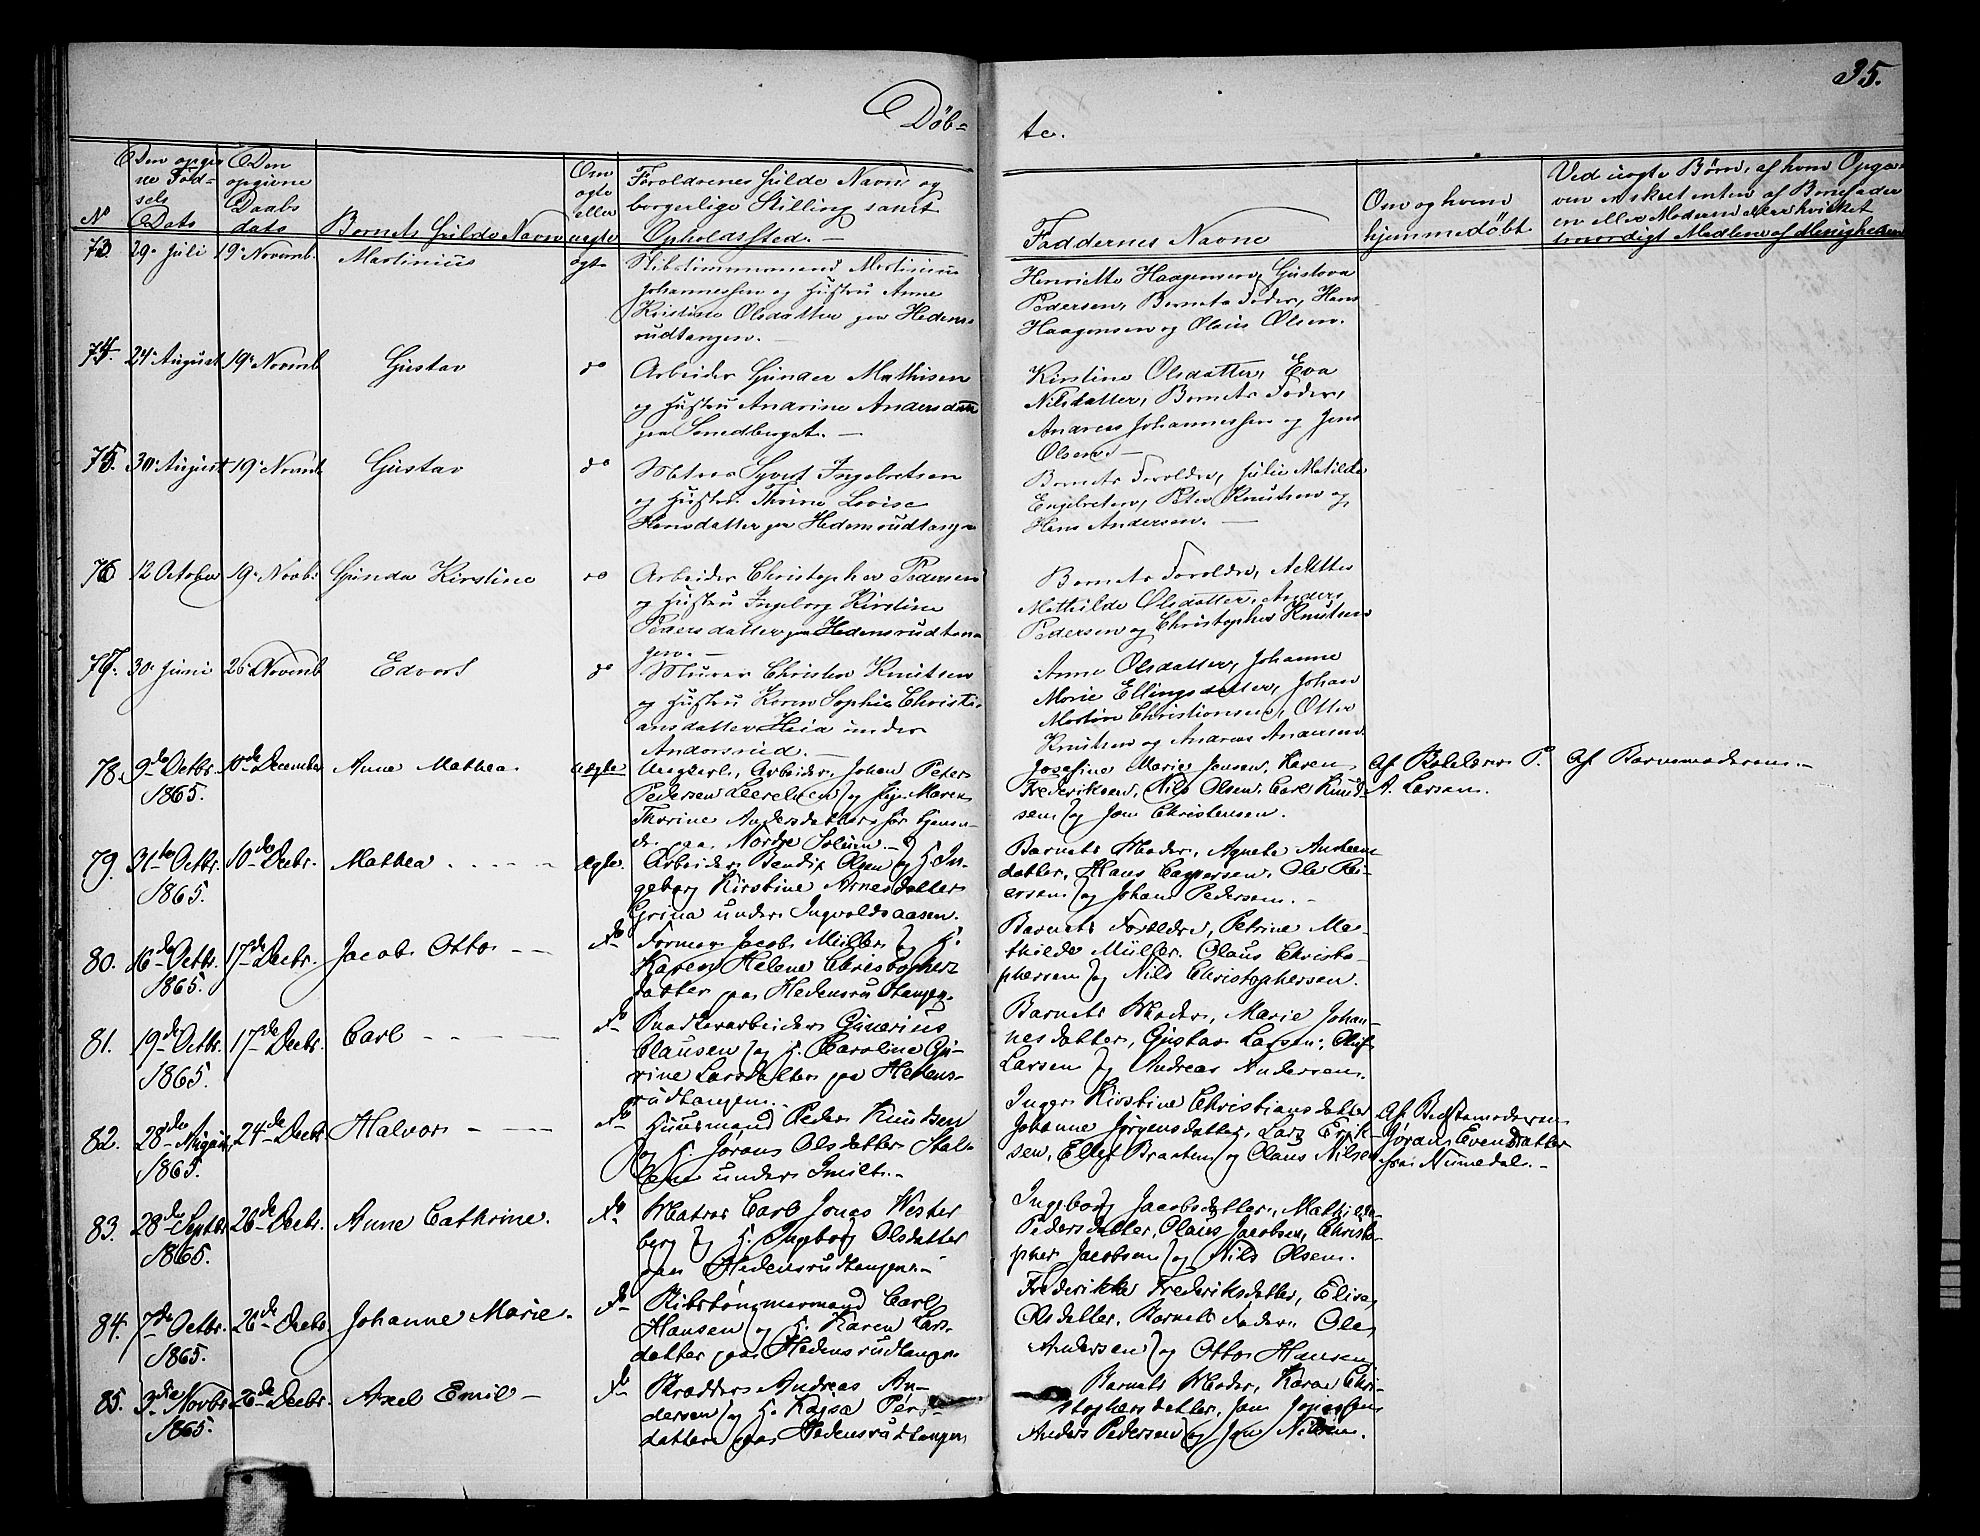 35.
Døb=
te.
N°
Den opgiv
ne Fød=
sels
Dato
Den
opgivne
Daabs
dato
Barnets fulde Navn
Om
ægte
eller
uægte
Forældrenes fulde Navn og
borgerlige Stilling samt
Opholdssted. —
Faddernes Navne
Om og hvem
hjemmedøbt
Ved uægte Børn, af hvem Opga
ven er skeet enten af Barnefader
en eller Moderen eller hvilket
troværdigt Medlem af Menigheden
73. 29. Juli 19. Novemb. Martinius ægte
Skibstimmermand Martinius
Johannessen og Hustru Anne
Kristine Olsdatter paa Hedens
rudtangen. —
Henriette Haagensen, Gustava
Pedersen, Barnets Fader, Hans
Haagensen og Olaus Olsen.
74. 24. August 19. Novemb Gustav do
Arbeider Gunder Mathisen
og Hustru Andrine Andersdatter
paa Smedberget. —
Kirstine Olsdatter, Eva
Nilsdatter, Barnets Fader,
Andreas Johannessen og Jens
Olsen. —
75. 30. August 19. Novemb Gustav do
Matros Syvert Ingebretsen
og Hustru Thrine Lovise
Hansdatter paa Hedensrudtangen
Barnets Forældre, Julie Matilde
Engebretsen, Peter Knutsen og
Hans Andersen. —
76 12 October 19. Novb. Gunda Kirstine do
Arbeider Christopher Pedersen
og Hustru Ingeborg Kirstine
Pedersdatter paa Hedensrudtan
gen. —
Barnets Forældre,
Mathilde Olsdatter, Anders
Pedersen og Christopher Knutsen
77. 30. Juni 26. Novemb Edvart do
Murer Christen Knutsen
og Hustru Karen Sophie Christi
ansdatter Heia under
Andorsrud. —
Anne Olsdatter, Johanne
Marie Ellingsdatter, Johan
Martin Christiansen, Otter
Knutsen og Andreas Andersen
78. 9de Octbr. 1865. 10de December Anne Mathea. uægte
Ungkarl, Arbeider Johan Peter
Pedersen og Pige Maren
Thorine Andersdatter før tjenen
de paa Nordre Solum. —
Josefine Marie Jensen, Karen
Frederiksen, Nils Olsen, Carl Knud
sen og Jan Christensen.
Af P.
A. Larsen.
Af Barnemoderen. —
79. 31te Octbr. 1865. 10de Decbr. Mathea ægte.
Arbeider Bendix Olsen og H. In
geborg Kirstine Arnesdatter
Grina under Ingvoldsaasen.
Barnets Moder, Agnete Anders
datter, Hans Caspersen, Ole Pe
ersen og Johan Pedersen. —
80. 16de Octbr. 1865. 17de Decbr. Jacob Otto Do
Former Jacob Müller og H.
Karen Helene Christopher
datter paa Hedensrudtangen.
Barnets Forældre, Petrine Ma
thilde Müller, Olaus Christo
phersen og Nils Christophersen.
81. 19de Octbr. 1865. 17de Decbr. Carl Do
Brugsarbeider Gunerius
Clausen og H. Karoline Gu
rine Larsdatter paa Hedens
rudtangen.
Barnets Moder, Marie Johan
nesdatter, Gustav Larsen, Oluf
Larsen og Andreas Andersen.
82. 28de August 1865. 24de Decbr. Halvor Do
Huusmand Peder Knudsen
og H. Jøran Olsdatter Stal
len under Smilt. —
Inger Kirstine Christiansdatter
Johanne Jørgensdatter, Lars Erik
sen, Ellef Braaten og Olaus Nilsen
Af Bedstemoderen
Jøran Evensdatter
fra Numedal. —
83. 28de Septbr 1865. 26de Decbr. Anne Cathrine. Do
Matros Carl Jonas Wester
berg og H. Ingeborg Olsdatter
paa Hedensrudtangen. —
Ingeborg Jacobsdatter, Mathilde
Pedersdatter, Olaus Jacobsen, Christo
pher Jacobsen og Nils Olsen.
84. 7de Octbr. 1865. 26de Decbr Johanne Marie. Do
Skibstømmermand Carl
Hansen og H. Karen Lars
datter paa Hedensrudtangen
Frederikke Frederiksdatter, Elisa
Olsdatter, Barnets Fader, Ole
Andersen og Otto Hansen.
85. 3die Novbr 1865. 26de Decbr. Axel Emil — Do
Skrædder Andreas An
dersen og H. Kajsa Pers
datter paa Hedensrudtangen
Barnets Moder, Karen Chri
stophersdatter, Jan
Anders Pedersen og Jan Nilsen.